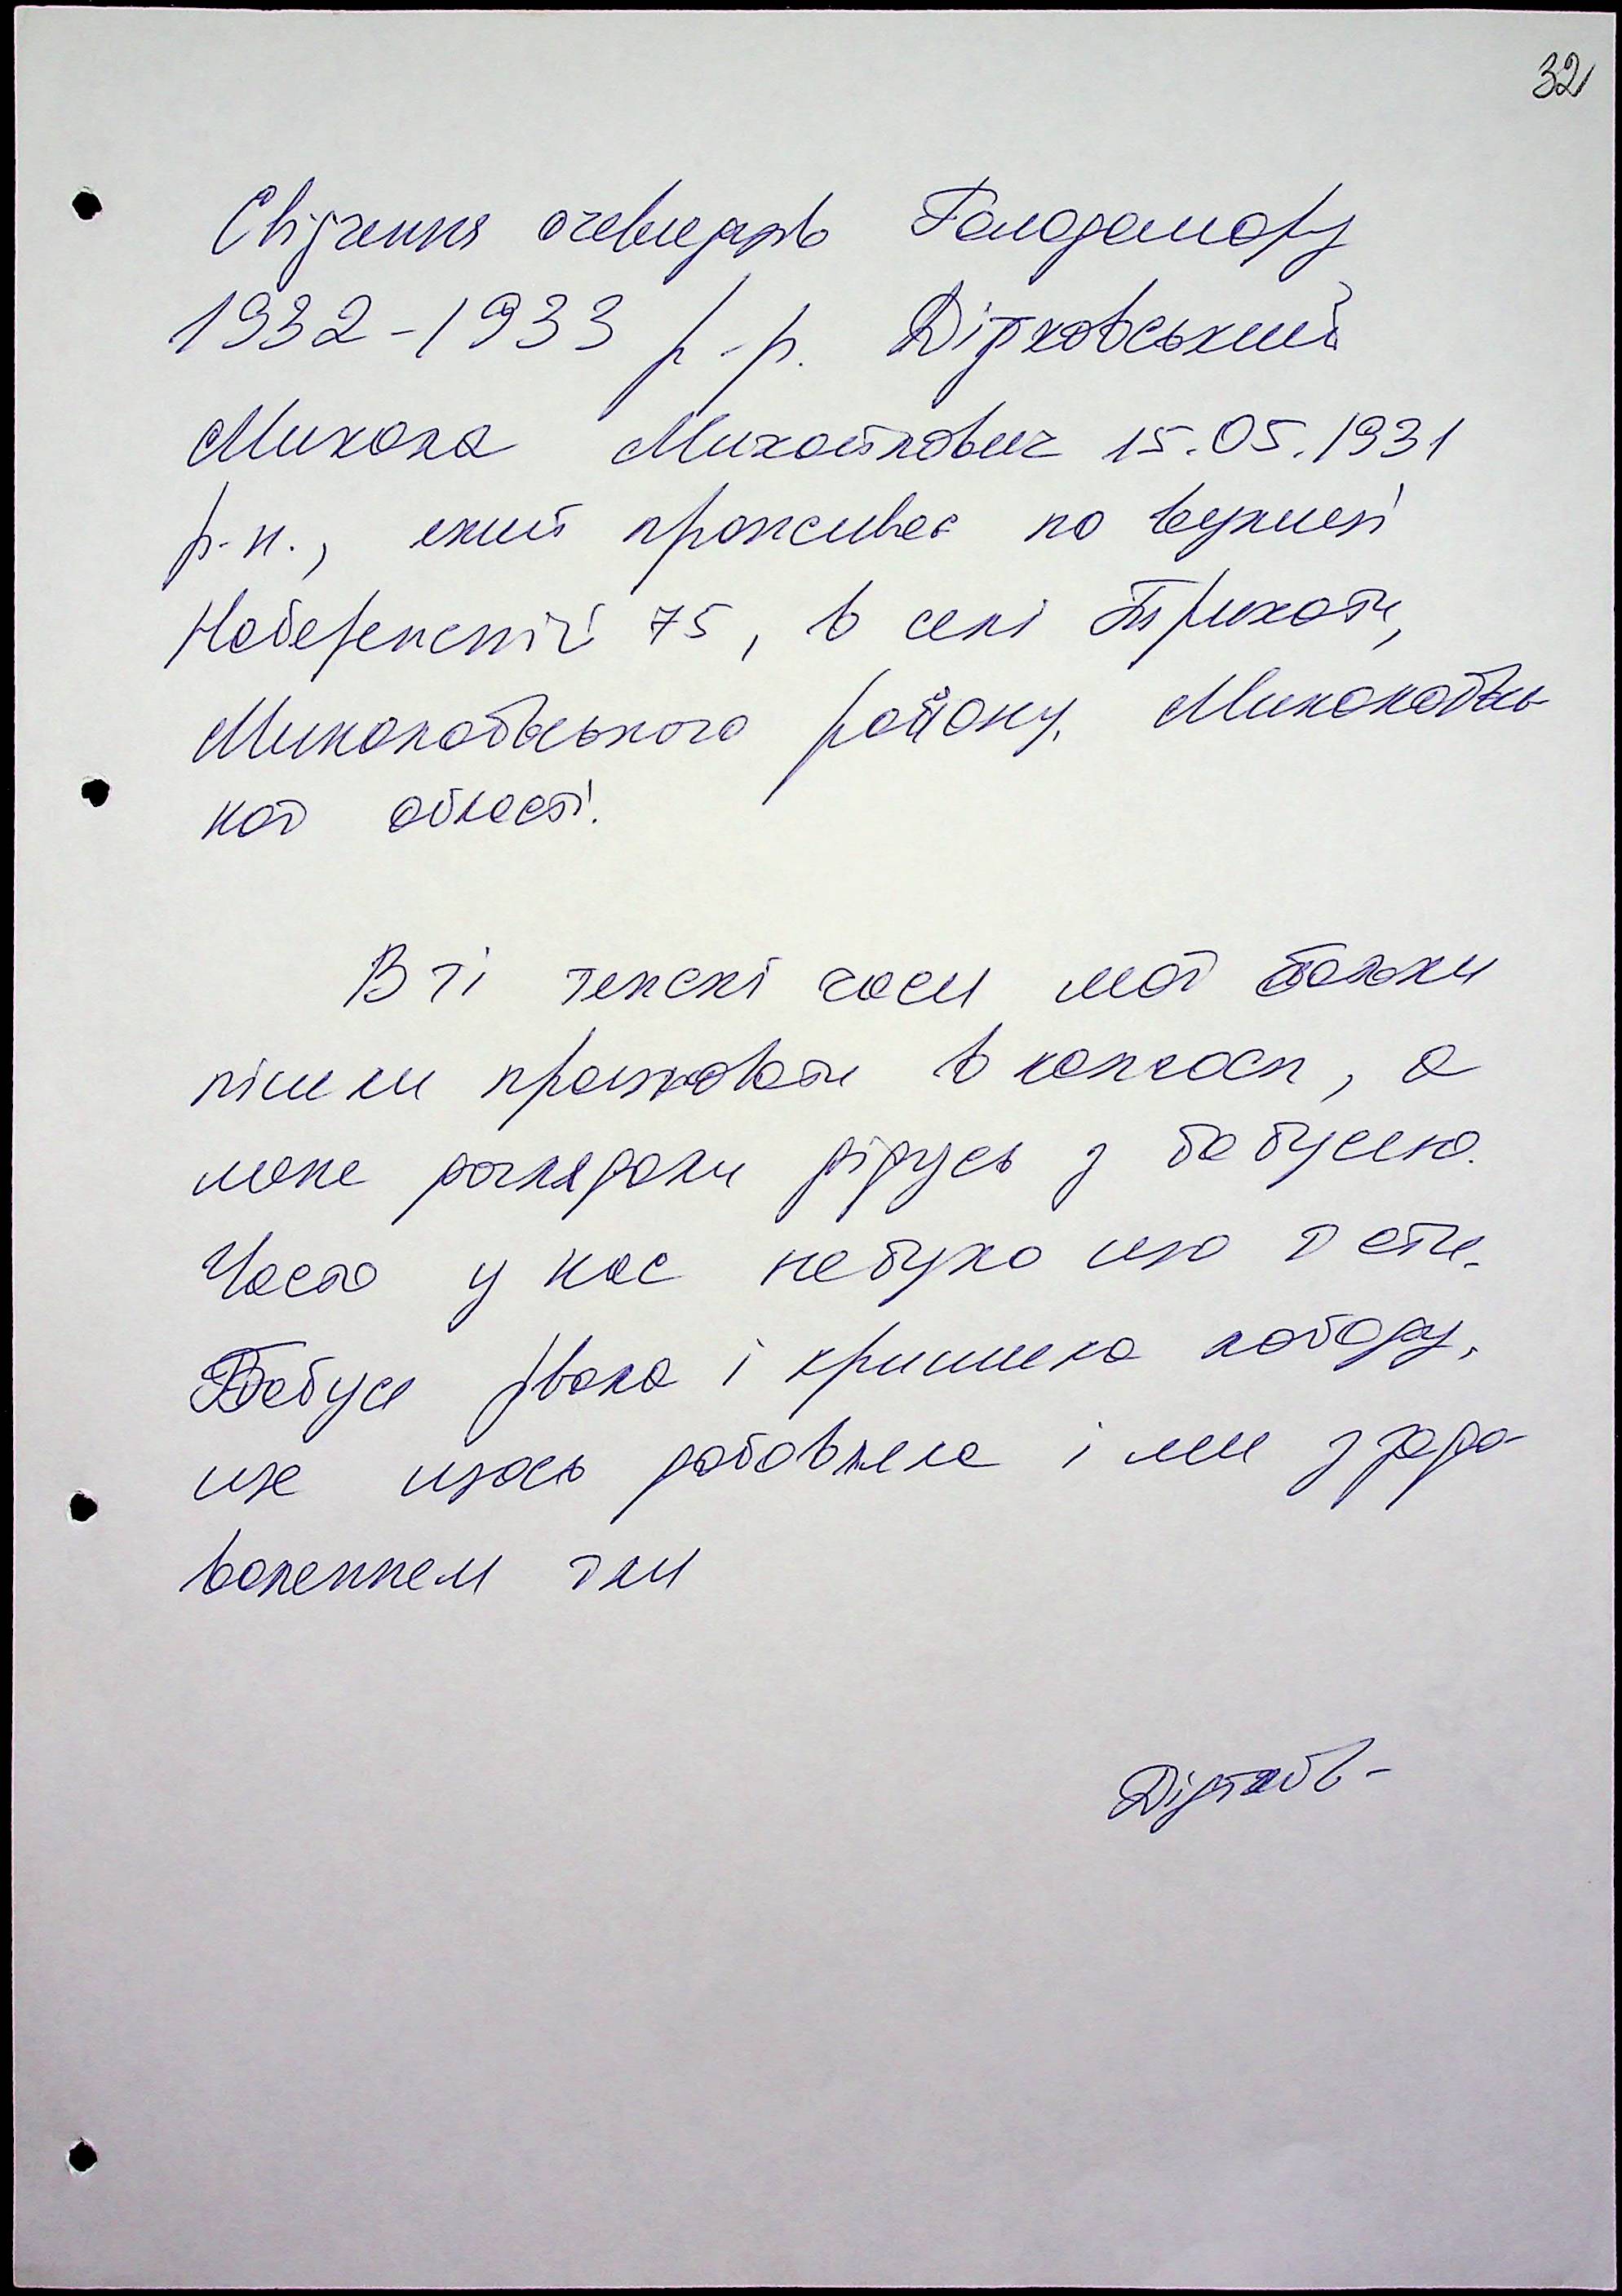 32
Свідчення очевидців Голодомору
1932-1933 р-р. Дідковський
Микола Михайлович 15.05.1931
р.н., який проживає по вулиці
Набережній 75, в селі Трихати,
Миколаївського району, Миколаївсь
кої області.
В ті тяжкі часи мої батьки
пішли працювати в колгосп, а
мене доглядали дідусь з бабусею.
Часто у нас небуло що їсти.
Бабуся рвала і кришила лободу,
ще щось добавляла і ми з задо-
воленням їли